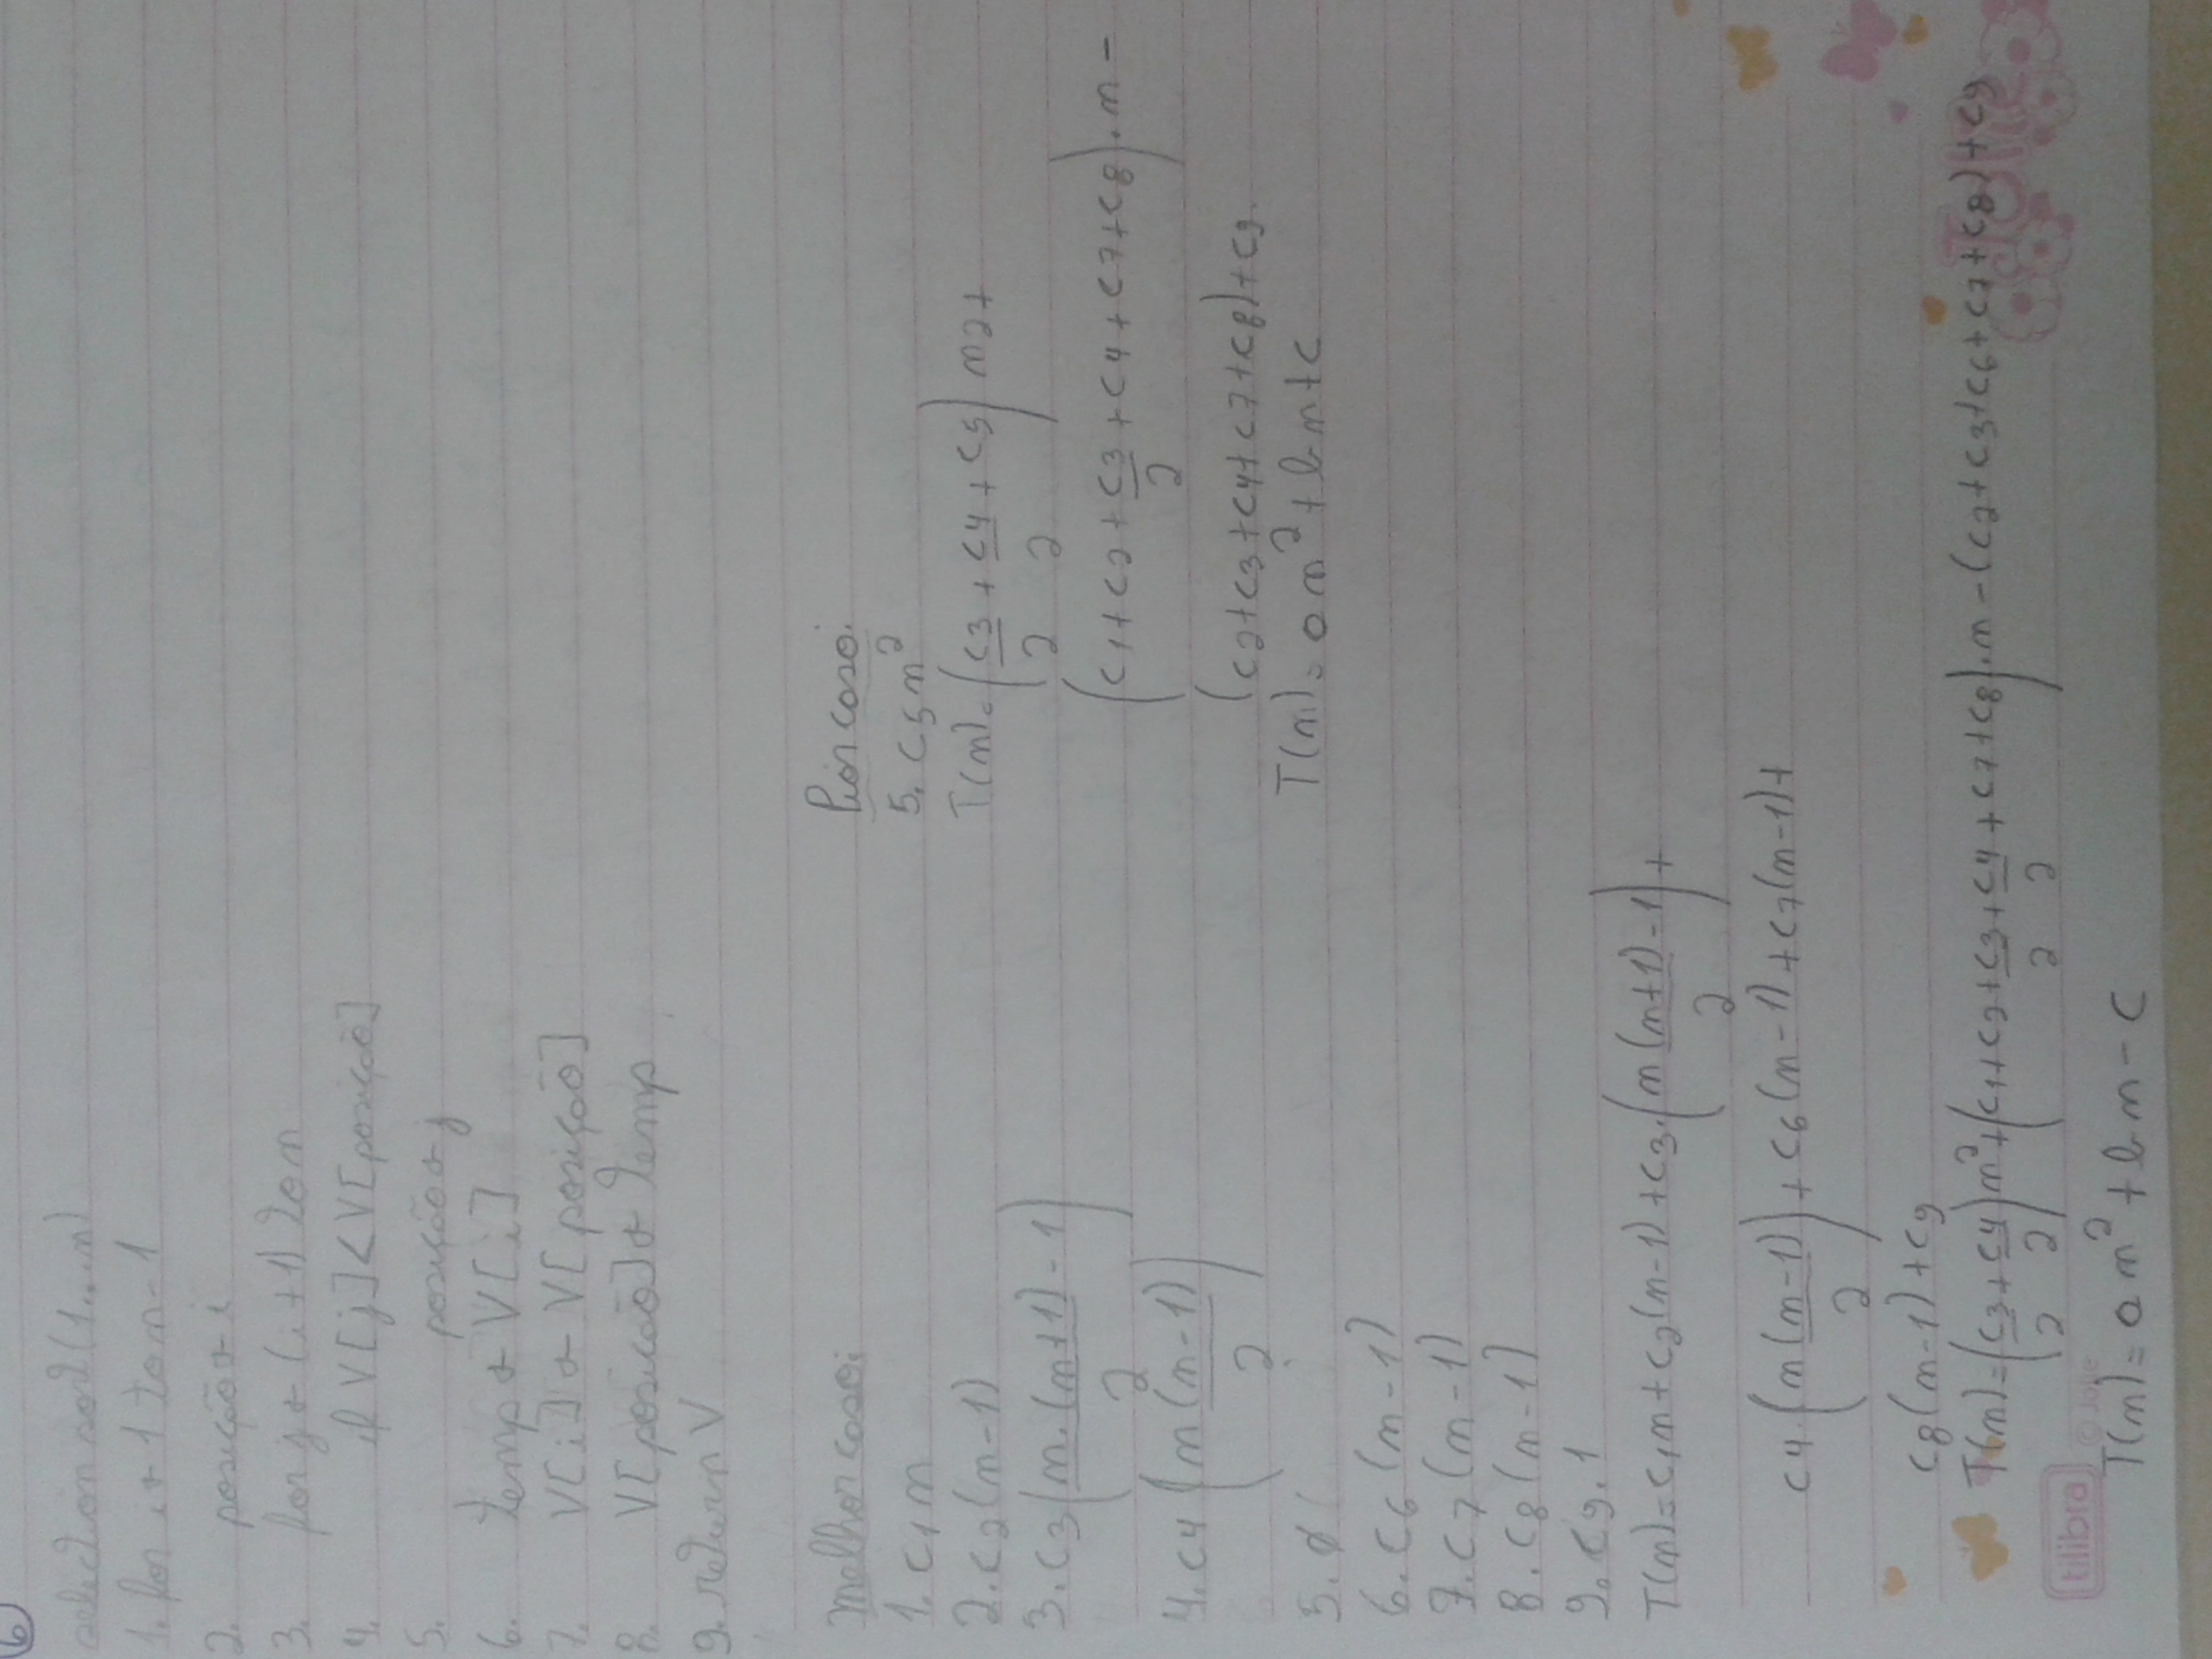 6
selection sort (1...n)
1. for i ← 1 to n-1
2. posição ← i
3. for j ← (i+1) to n
4. if V[j] < V[posição]
5. posição ← j
6. temp ← V[i]
7. V[i] ← V[posição]
8. V[posicão] ← temp
9. return V
Melhor caso:
1. c1n
2. c2(n-1)
3. c3(n.(n+1)/2 - 1)
4. c4(n(n-1)/2)
5. ∅
6. c6(n-1)
7. c7(n-1)
8. c8(n-1)
9. c9.1
T(n) = c1n + c2(n-1) + c3.(n(n+1)/2 - 1) +
c4.(n(n-1)/2) + c6(n-1) + c7(n-1) +
c8(n-1) + c9
T(n) = (c3/2 + c4/2)n² + (c1 + c2 + c3/2 + c4/2 + c7 + c8).n - (c2 + c3 + c6 + c7 + c8) + c9
T(n) = an² + bn - c
Pior caso:
5. c5n²
T(n) = (c3/2 + c4/2 + c5) n2 +
(c1 + c2 + c3/2 + c4 + c7 + c8).n -
(c2 + c3 + c4 + c7 + c8) + c9.
T(n) = an² + bn + c
tilibra
© Jolie
Jolie